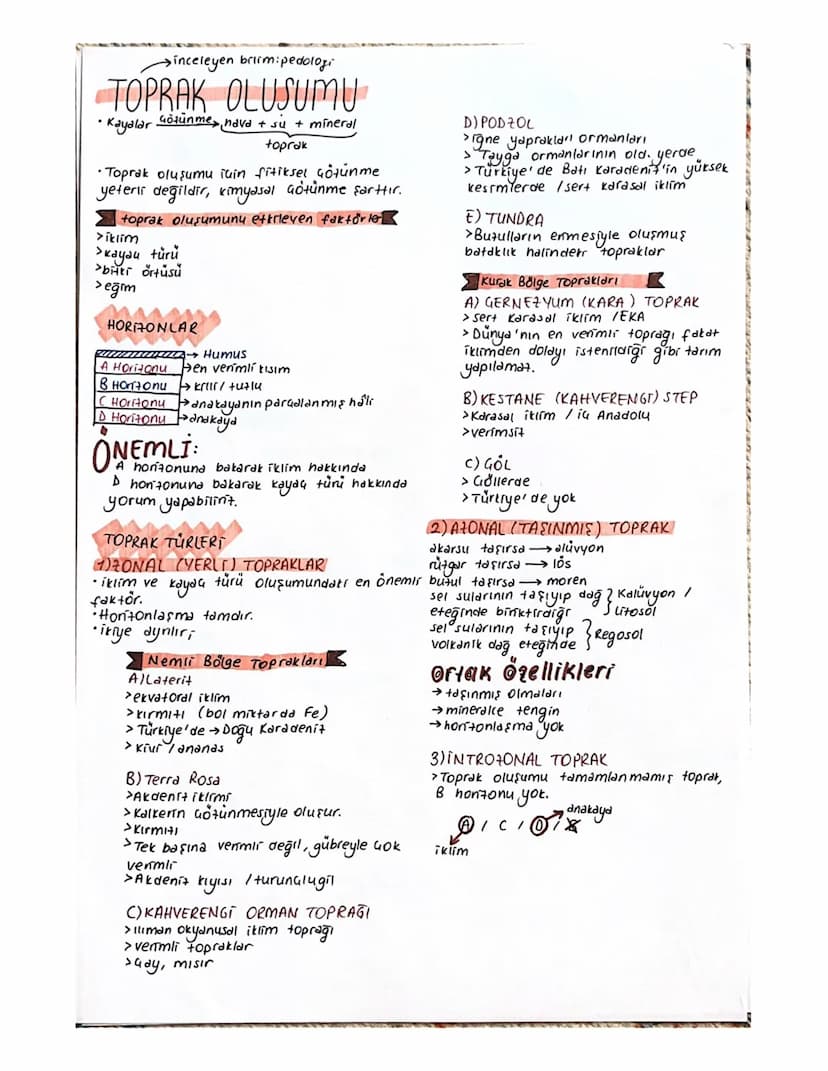 inceleyen bilim:pedoloji
TOPRAK OLUŞUMU
• Kayalar çözünme hava + su + mineral
toprak
• Toprak oluşumu için fiziksel çözünme
yeterli değildir, kimyasal çözünme şarttır.
toprak oluşumunu etkileyen faktörler
>iklim
>kayaç türü
>bitki örtüsü
>eğim
HORİZONLAR
Humus
A Horizonu en verimli kısım
B Horizonu killi / tuzlu
C Horizonu anakayanın parçalanmış hâli
D Horizonu anakaya
ÖNEMLİ:
A horizonuna bakarak iklim hakkında
D horizonuna bakarak kayaç türü hakkında
yorum yapabiliriz.
TOPRAK TÜRLERİ
1)ZONAL (YERLİ) TOPRAKLAR
• iklim ve kayaç türü oluşumundaki en önemli
faktör.
• Horizonlaşma tamdır.
• ikiye ayrılır;
Nemli Bölge Toprakları
A)Laterit
>ekvatoral iklim
>kırmızı (bol miktarda Fe)
>Türkiye'de → Doğu Karadeniz
>kivi / ananas
B) Terra Rosa
>Akdeniz iklimi
>kalkerin çözünmesiyle oluşur.
>kırmızı
>Tek başına verimli değil, gübreyle çok
verimli
>Akdeniz kıyısı / turunçlugil
C)KAHVERENGİ ORMAN TOPRAĞI
>ılıman okyanusal iklim toprağı
>verimli topraklar
>çay, mısır
D)PODZOL
>iğne yapraklı ormanları
>Tayga ormanlarının old. yerde
>Türkiye'de Batı Karadeniz'in yüksek
kesimlerde / sert karasal iklim
E) TUNDRA
>Buzulların erimesiyle oluşmuş
bataklık halindeki topraklar
Kurak Bölge Toprakları
A) ÇERNEZYUM (KARA) TOPRAK
>sert karasal iklim / EKA
>Dünya'nın en verimli toprağı fakat
iklimden dolayı istenildiği gibi tarım
yapılamaz.
B) KESTANE (KAHVERENGİ) STEP
>Karasal iklim / iç Anadolu
>verimsiz
C) ÇÖL
>Çöllerde
>Türkiye'de yok
2) AZONAL (TAŞINMIŞ) TOPRAK
akarsu taşırsa → alüvyon
rüzgar taşırsa → lös
buzul taşırsa → moren
sel sularının taşıyıp dağ
eteğinde biriktirdiği
Kolüvyon /
Litosol
sel sularının taşıyıp
volkanik dağ eteğinde
Regosol
ortak özellikleri
→ taşınmış olmaları
→ mineralce zengin
→ horizonlaşma yok
3)İNTROZONAL TOPRAK
>Toprak oluşumu tamamlanmamış toprak,
B horizonu yok.
anakaya
A / C / D / X
iklim